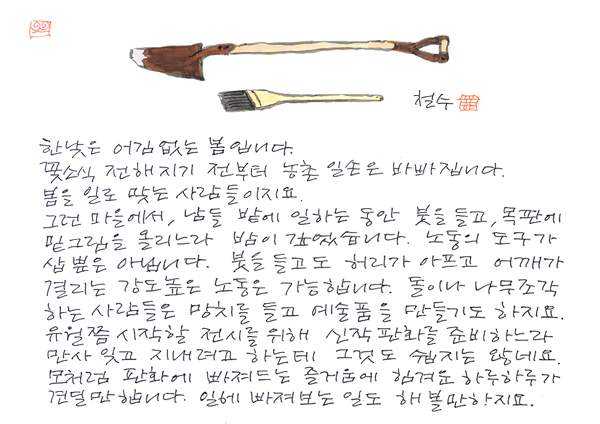 철수
한낮은 어김없는 봄입니다.
꽃소식 전해지기 전부터 농촌 일손은 바빠집니다.
봄을 일로 맞는 사람들이지요.
그런 마을에서, 남들 밭에 일하는 동안 붓을 들고, 목판에
밑그림을 올리느라 밤이 깊었습니다. 노동의 도구가
삽 뿐은 아닙니다. 붓을 들고도 허리가 아프고 어깨가
결리는 강도높은 노동은 가능합니다. 돌이나 나무조각
하는 사람들은 망치를 들고 예술품을 만들기도 하지요.
유월쯤 시작할 전시를 위해 신작판화를 준비하느라
만사 잊고 지내려고 하는데 그것도 쉽지는 않네요.
모처럼 판화에 빠져드는 즐거움에 힘겨운 하루하루가
견딜만합니다. 일에 빠져보는 일도 해볼만하지요.